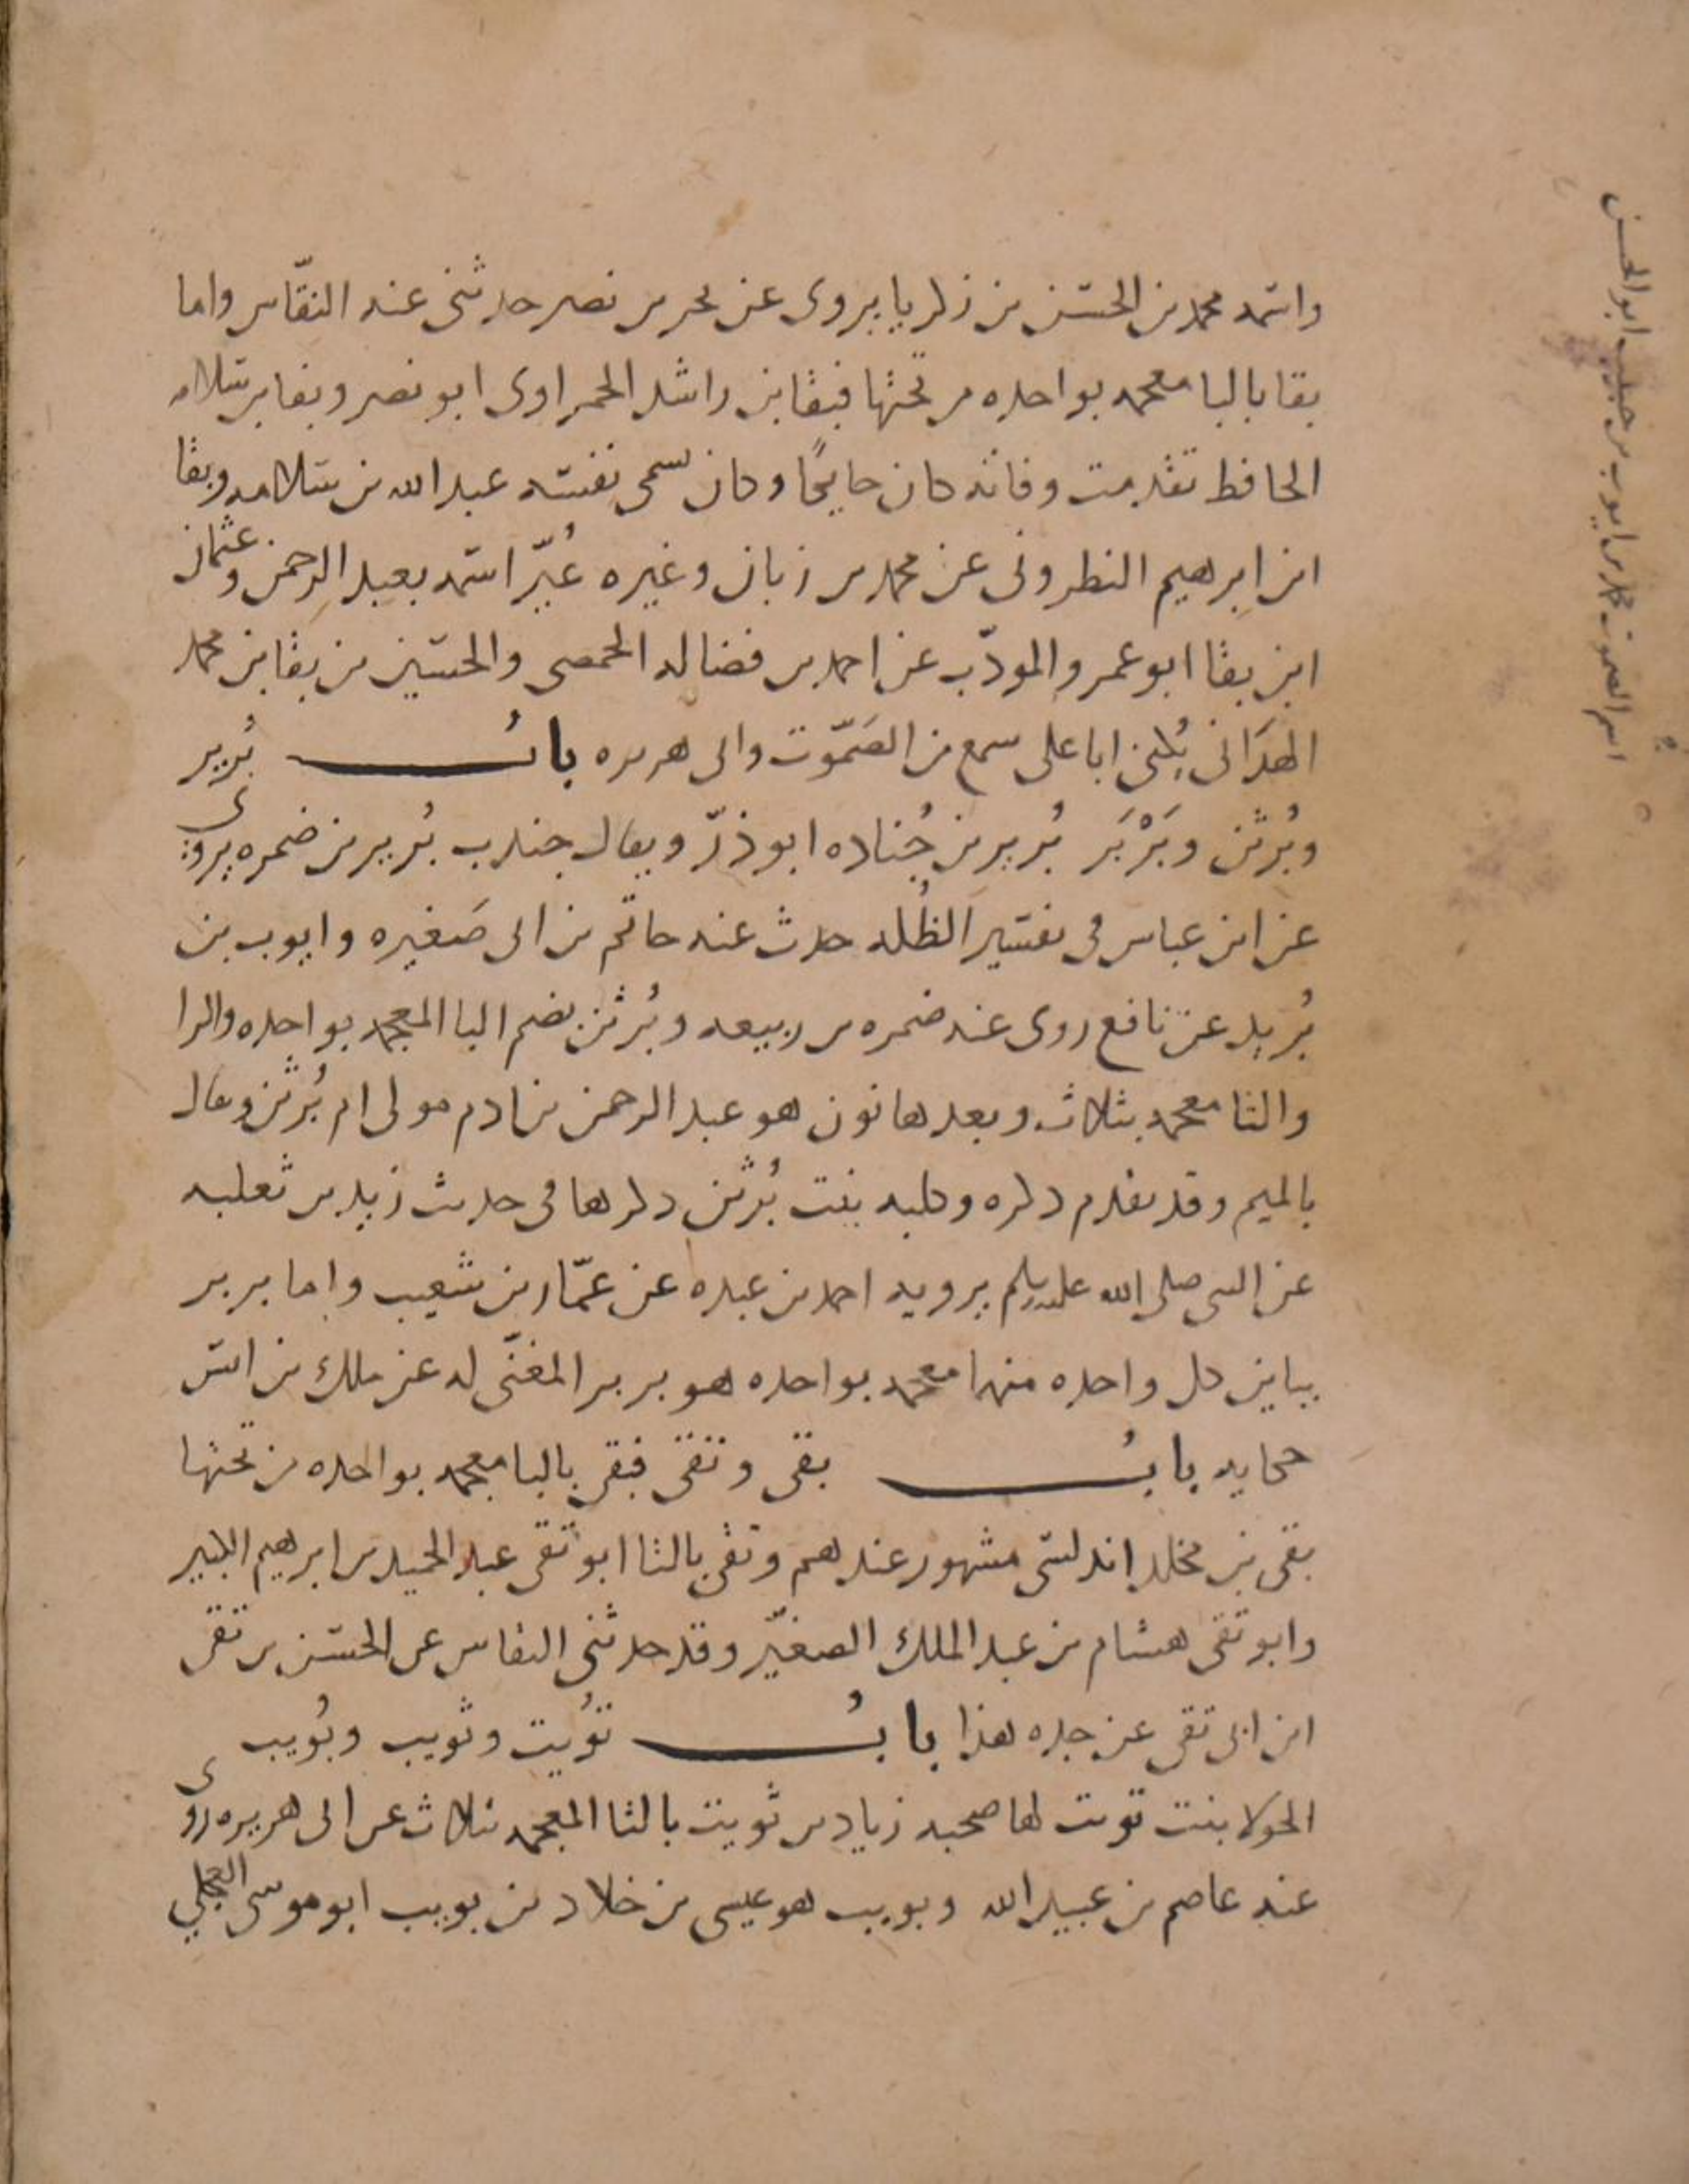 واسمه محمد بن الحسن بن زكريا يروى عن بحر بن نصر حدثنى عنه النقّاس واما
بقا بالبا معجمه بواحده من تحتها فبقا بن راشد الحمراوى ابو نصر وبقا بن سلامه
الحافظ تقدمت وفاته كان حايكًا وكان يسمى نفسه عبد الله بن سلامه وبقا
ابن ابرهيم النطرونى عن محمد بن زبان وغيره غُيّر اسمه بعبد الرحمن وعثمان
ابن بقا ابو عمرو المودّب عن احمد بن فضاله الحمصى والحسين بن بقا بن محمد
الهدَانى يُكنى ابا على سمع من الصَمّوت وابى هريره بابُ بُرير
وبُرثن وبَرْبَر بُرير بن جُناده ابو ذرّ ويقال جندب بُرير بن ضمره يروى
عن ابن عباس فى تفسير الظُله حدث عنه حاتم بن ابى صَغيره وايوب بن
بُريد عن نافع روى عنه ضمره بن ربيعه وبُرثن بضم البا المعجمه بواحده والرا
والثا معجمه بثلاث وبعدها نون هو عبد الرحمن بن ادم مولى ام بُرثن ويقال
بالميم وقد تقدم ذكره وكلبه بنت بُرثن ذكرها فى حديث زبيد بن ثعلبه
عن النبى صلى الله عليه وسلم يرويه احمد بن عبده عن عمّار بن شعيب واما بربر
بباين كل واحده منهما معجمه بواحده هو بربر المغنّى له عن ملك بن انس
حكايه بابُ بقى وتقى فبقى بالبا معجمه بواحده من تحتها
بقى بن مخلد اندلسى مشهور عندهم وتقى بالتا ابو تقى عبد الحميد بن ابرهيم الكبير
وابو تقى هشام بن عبد الملك الصغيّر وقد حدثنى النقاس عن الحسن بن تقى
ابن ابى تقى عن جده هذا بابُ تُوَيت وثويب وبُويب
الحولا بنت تويت لها صحبه زياد بن ثويب بالثا المعجمه بثلاث عن ابى هريره روى
عنه عاصم بن عبيد الله وبويب هو عيسى بن خلاد بن بويب ابو موسى العجلي
اسم الصموت محمد بن ايوب بن حبيب ابو الحسن